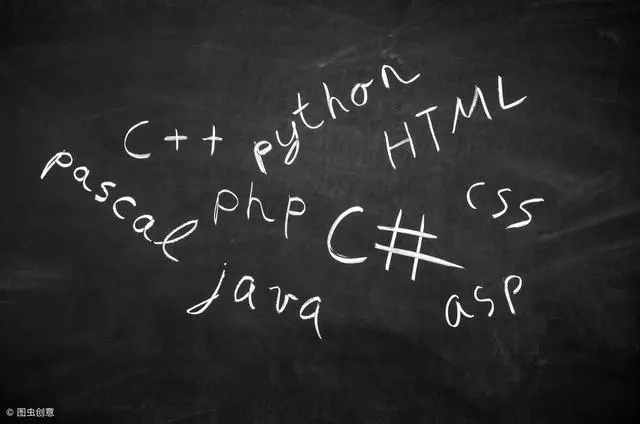 python
HTML
C++
pascal
php
css
C#
java
asp
© 图虫创意